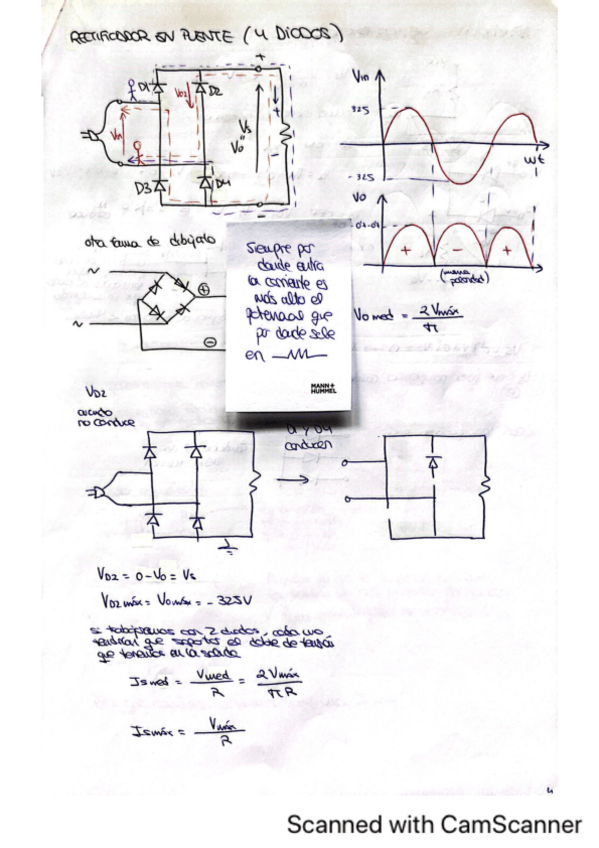 RECTIFICADOR EN PUENTE (4 DIODOS)
+
D1
VD2
D2
Vin
Vs
"
Vo
+
-
D3
D4
-
Vin
325
-325
wt
Vo
+
-
+
(misma
polaridad)
Vo med = 2Vmáx / π
otra forma de dibujarlo
~
+
~
-
Siempre por
donde entra
la corriente es
más alto el
potencial que
por donde sale
en
MANN+
HUMMEL
VD2
cuando
no conduce
conducen
VD2 = 0-Vo = Vs
VD2 máx = Vo máx = -325V
si trabajásemos con 2 diodos, cada uno
tendrían que soportar el doble de tensión
que tenemos en la salida
Is med = Vmed / R = 2 Vmáx / π R
Is máx = Vmáx / R
4
Scanned with CamScanner